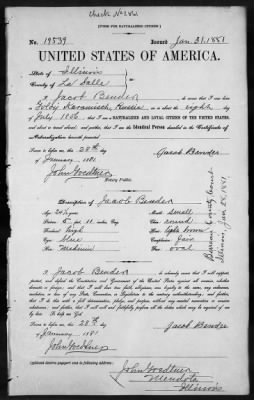 [FORM FOR NATURALIZED CITIZEN.]
No. 19539 Issued Jan. 31, 1881
UNITED STATES OF AMERICA.
State of Illinois
County of La Salle
I Jacob Bender
do swear that I was born in
Russia on or about the eighth day
of July 1856, that I am a NATURALIZED AND LOYAL CITIZEN OF THE UNITED STATES,
and about to travel abroad; and further, that I am the Identical Person described in the Certificate of
Naturalization herewith presented.
Sworn to before me, this 28th day
of January 1881 Jacob Bender
John Goedtner
Notary Public.
Description of Jacob Bender
Age: 24 1/2 years Mouth: small
Stature: 5 feet 11 inches, Eng. Chin: round
Forehead: high Hair: light brown
Eyes: blue Complexion: fair
Nose: medium Face: oval
Illinois, Jan 28, 1881
I, Jacob Bender, do solemnly swear that I will support,
protect, and defend the Constitution and Government of the United States against all enemies, whether
domestic or foreign; and that I will bear true faith, allegiance, and loyalty to the same, any ordinance,
resolution, or law of any State, Convention, or Legislature to the contrary notwithstanding; and further,
that I do this with a full determination, pledge, and purpose, without any mental reservation or evasion
whatsoever; and further, that I will well and faithfully perform all the duties which may be required of me
by law. So help me God.
Sworn to before me, this 28th day
of January 1881 Jacob Bender
John Goedtner
Applicant desires passport sent to following address:
John Goedtner
Mendota
Illinois